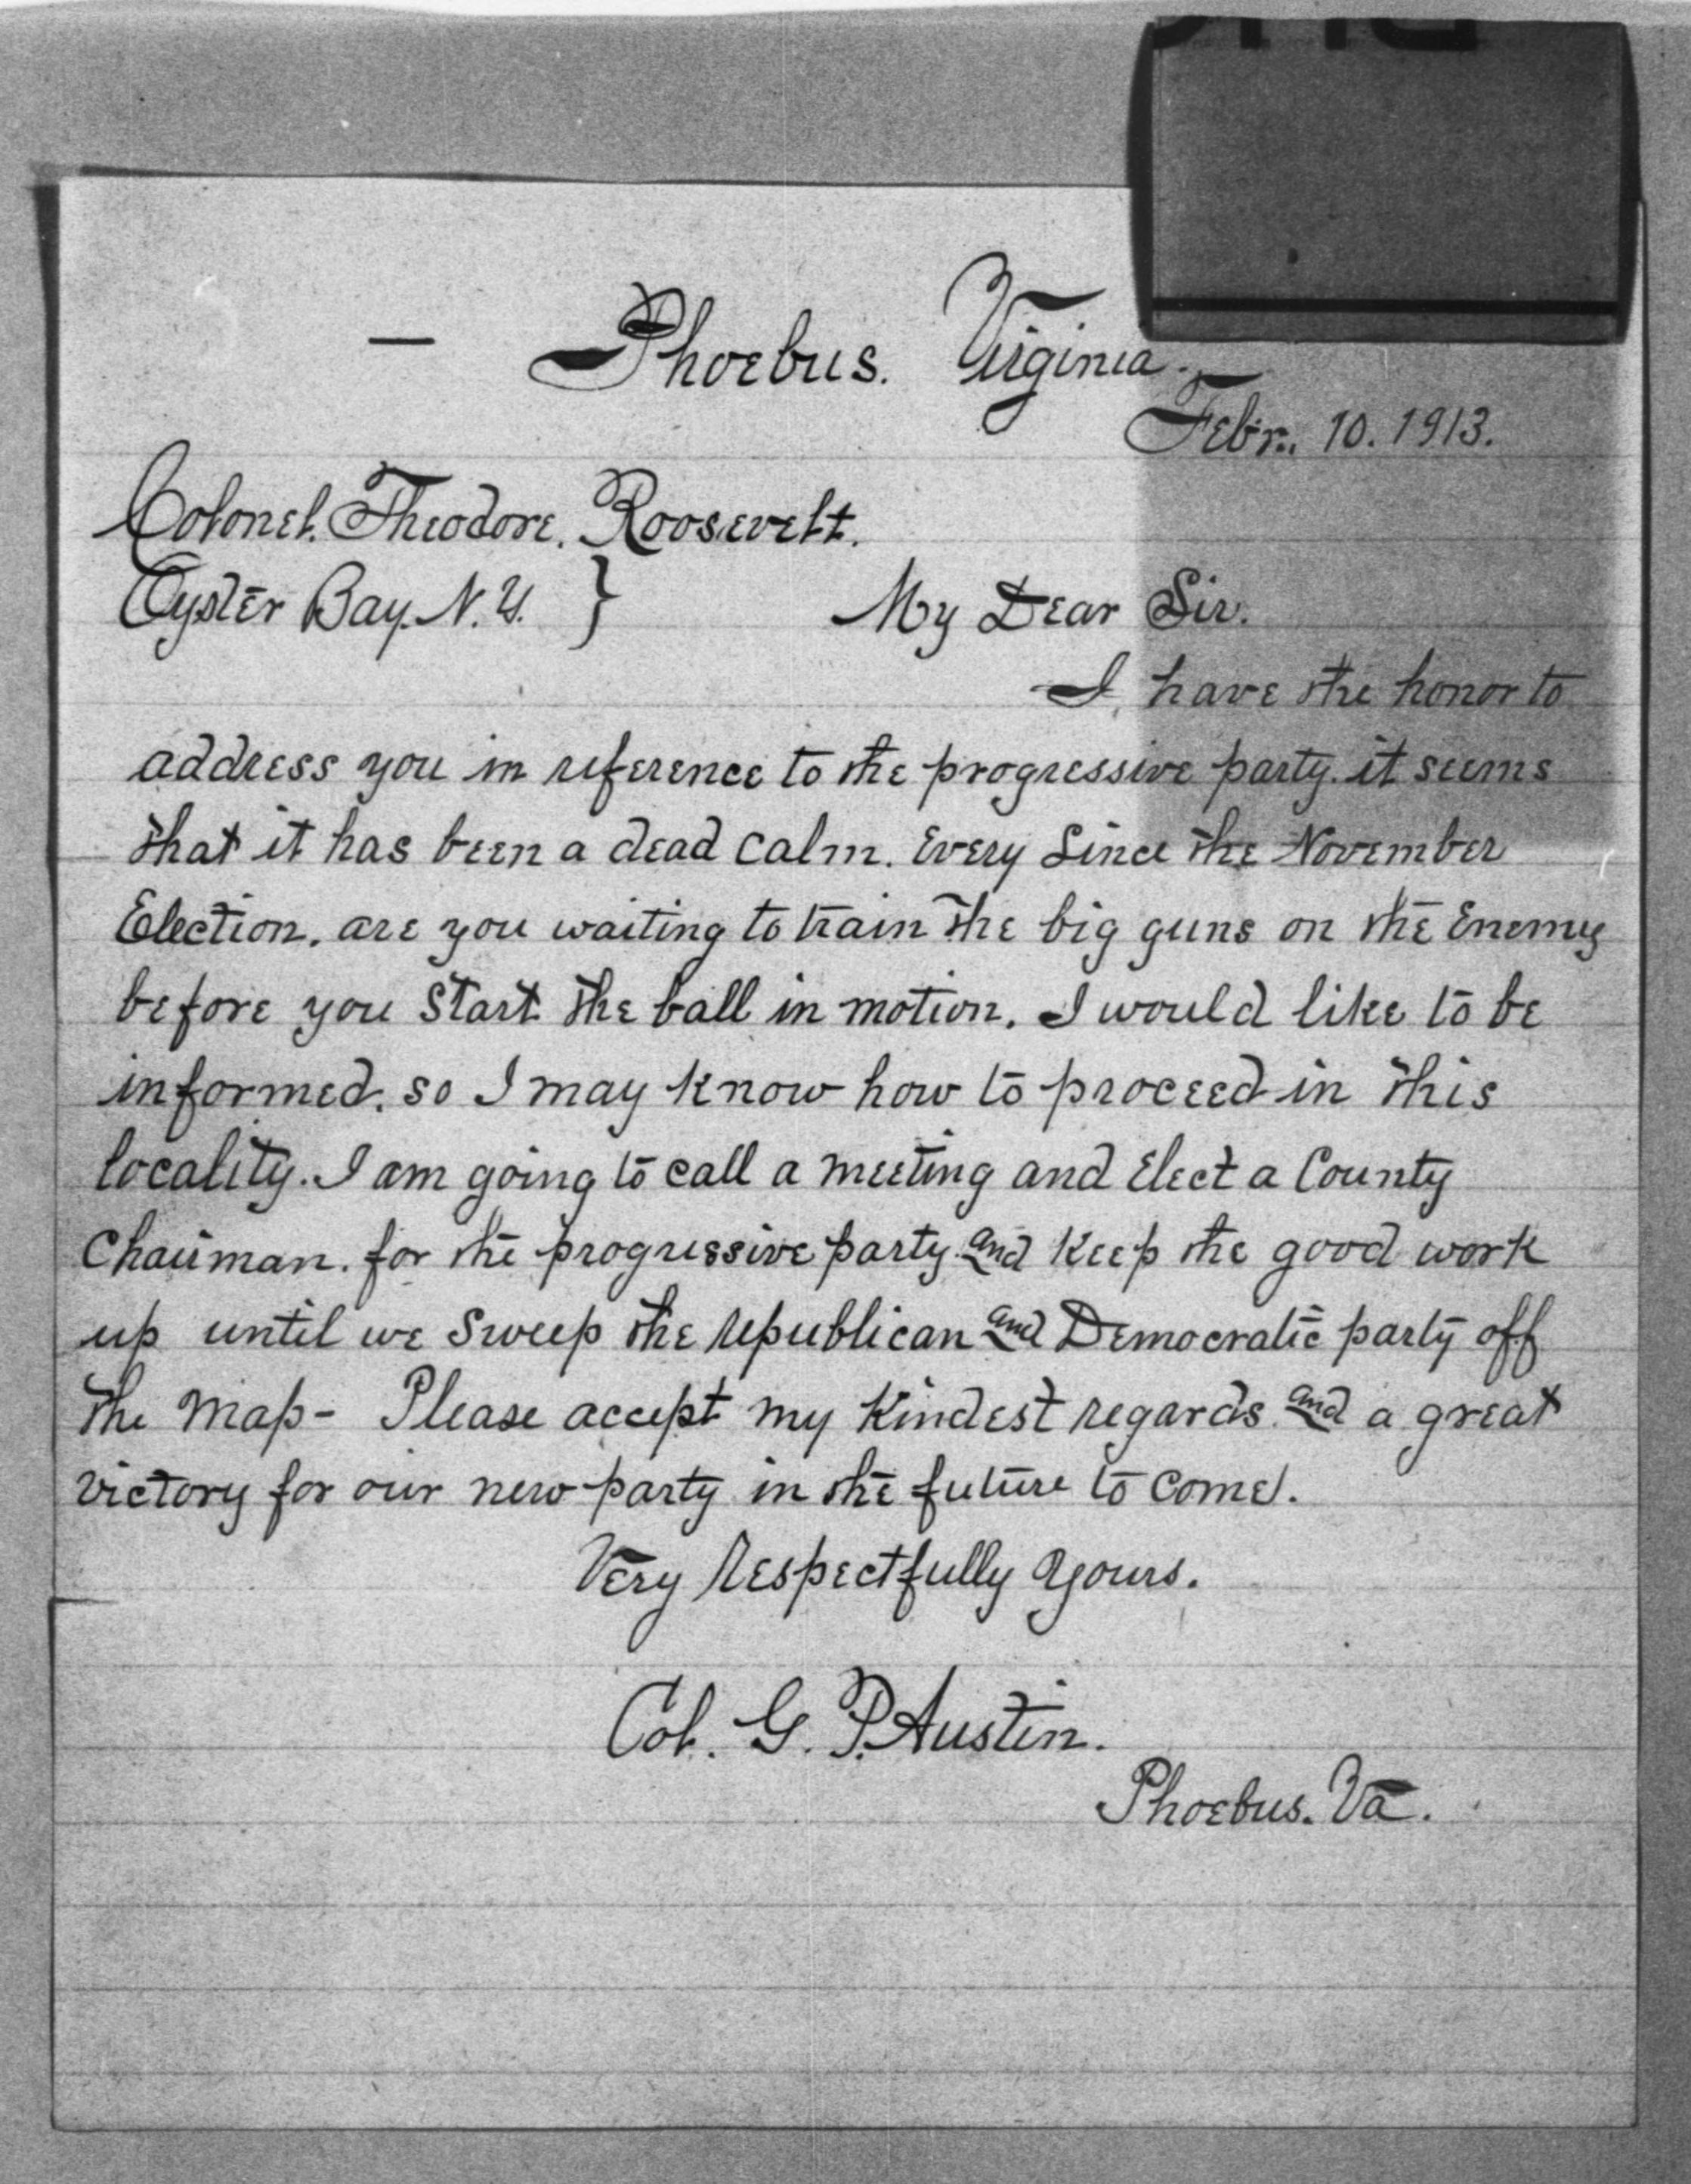 Phoebus. Virginia.
Febr. 10. 1913.
Colonel. Theodore. Roosevelt.
Oyster Bay. N.Y. } My Dear Sir.
I have the honor to
address you in reference to the progressive party. it seems
that it has been a dead calm. Every Since the November
Election. are you waiting to train the big guns on the Enemy
before you Start the ball in motion. I would like to be
informed. so I may know how to proceed in this
locality. I am going to call a meeting and Elect a County
Chairman. for the progressive party. and Keep the good work
up until we Sweep the republican and Democratic party off
the map- Please accept my Kindest regards. and a great
victory for our new party in the future to come.
Very Respectfully Yours.
Col. G. P. Austin.
Phoebus. Va.